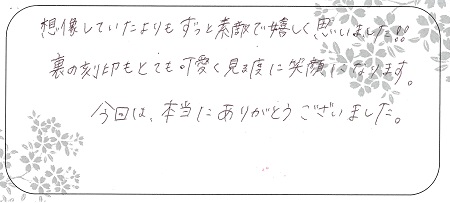 想像していたよりもずっと素敵で嬉しく思いました!!
裏の刻印もとても可愛く見る度に笑顔になります。
今回は、本当にありがとうございました。